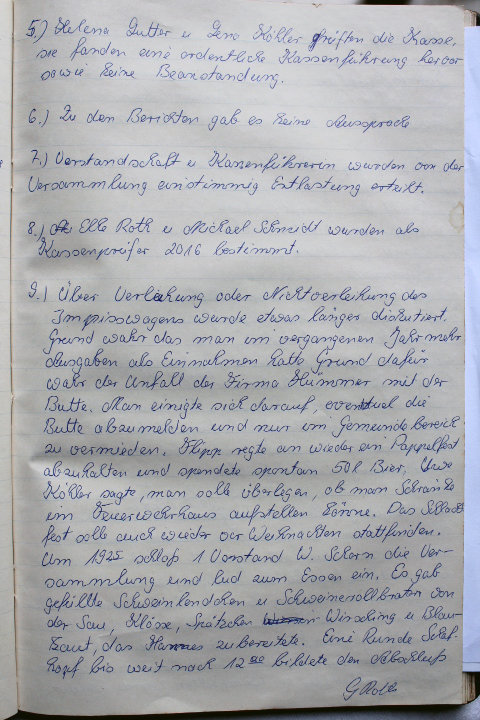 5.) Helena Dutter u Gena Köhler prüften die Kasse,
sie fanden eine ordentliche Kassenführung hervor
sowie keine Beanstandung.
6.) Zu den Berichten gab es keine Aussprache
7.) Vorstandschaft u Kassenführerin wurden von der
Versammlung einstimmig Entlastung erteilt.
8.) Elke Roth u Michael Schmidt wurden als
Kassenprüfer 2016 bestimmt.
9.) Über Verleihung oder Nichtverleihung des
Imbisswagens wurde etwas länger diskutiert.
Grund wahr das man im vergangenen Jahr mehr
Ausgaben als Einnahmen hatte Grund dafür
wahr der Unfall der Firma Hümmer mit der
Butte. Man einigte sich darauf, eventuel die
Butte abzumelden und nur im Gemeindebereich
zu vermieden. regte an wieder ein Pappelfest
abzuhalten und spendete spontan 50 l Bier. Uwe
Köhler sagte, man solle überlegen, ob man Schränke
im Feuerwehrhaus aufstellen könne. Das Schlacht
fest solle auch wieder vor Weihnachten stattfinden.
Um 1925 schloß 1 Vorstand W. Schorn die Ver-
sammlung und lud zum Essen ein. Es gab
gefüllte Schweinlendchen u Schweinerollbraten von
der Sau, Klöse, Spätzchen Wirsching u Blau-
kraut, das Hannes zubereitete. Eine Runde Schaf-
kopf bis weit nach 12 00 bildete den Abschluß
G Roth